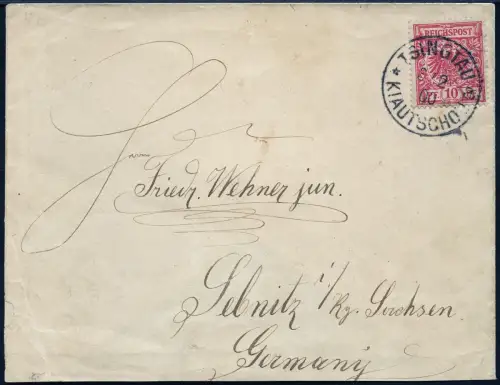 REICHSPOST
10
TSINGTAU
KIAUTSCHO
Friedr. Wehner jun.
Sebnitz i/Kg. Sachsen.
Germany